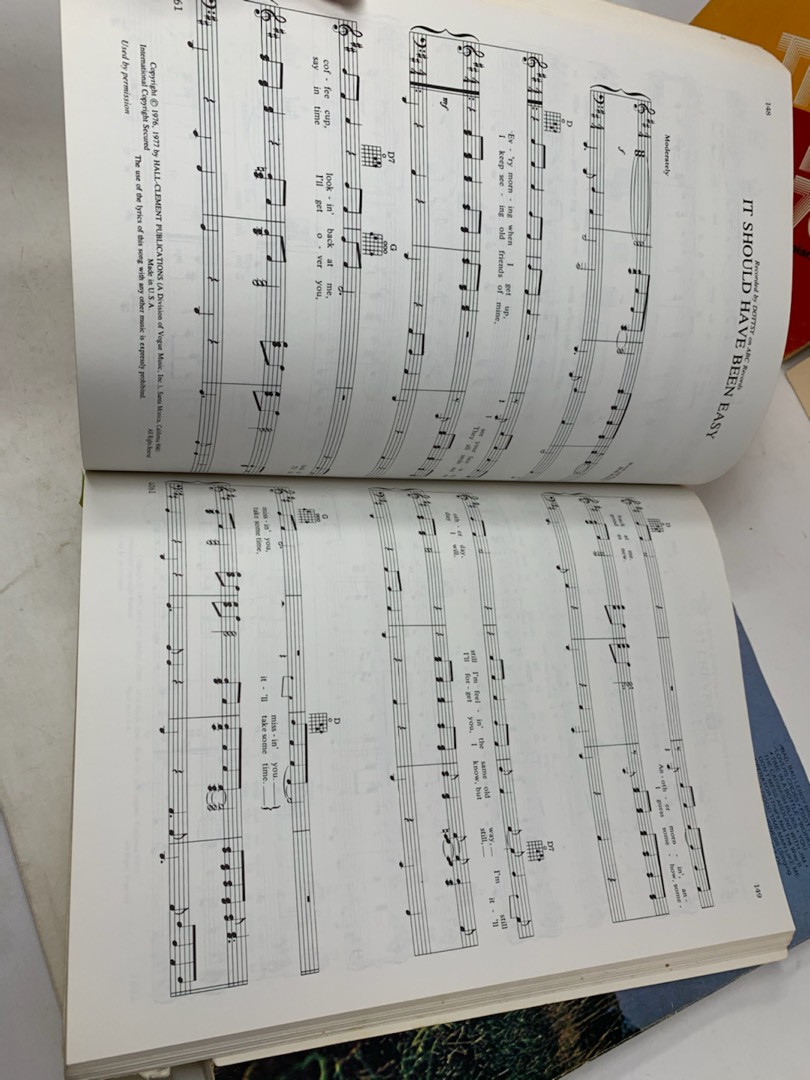 148
Recorded by DOTTSY on ABC Records
IT SHOULD HAVE BEEN EASY
Moderately
f
D
Ev - 'ry morn - ing when I get up,
I keep see - ing old friends of mine,
mf
They
D7 G
cof - fee cup, look - in' back at me,
say in time I'll get o - ver you,
Copyright © 1976, 1977 by HALL-CLEMENT PUBLICATIONS (A Division of Vogue Music, Inc.), Santa Monica, California
International Copyright Secured Made in U.S.A. All Rights Reserved
The use of the lyrics of this song with any other music is expressly prohibited.
Used by permission
61
149
D
back at me.
good as new.
An - oth - er morn - in', an -
I guess some - how, some -
D7
oth - er day,
day I will.
still I'm feel - in' the same old way, I'm still
I'll for - get you, I know, but still, it - 'll
G D
miss - in' you, miss - in' you.
take some time, it - 'll take some time.